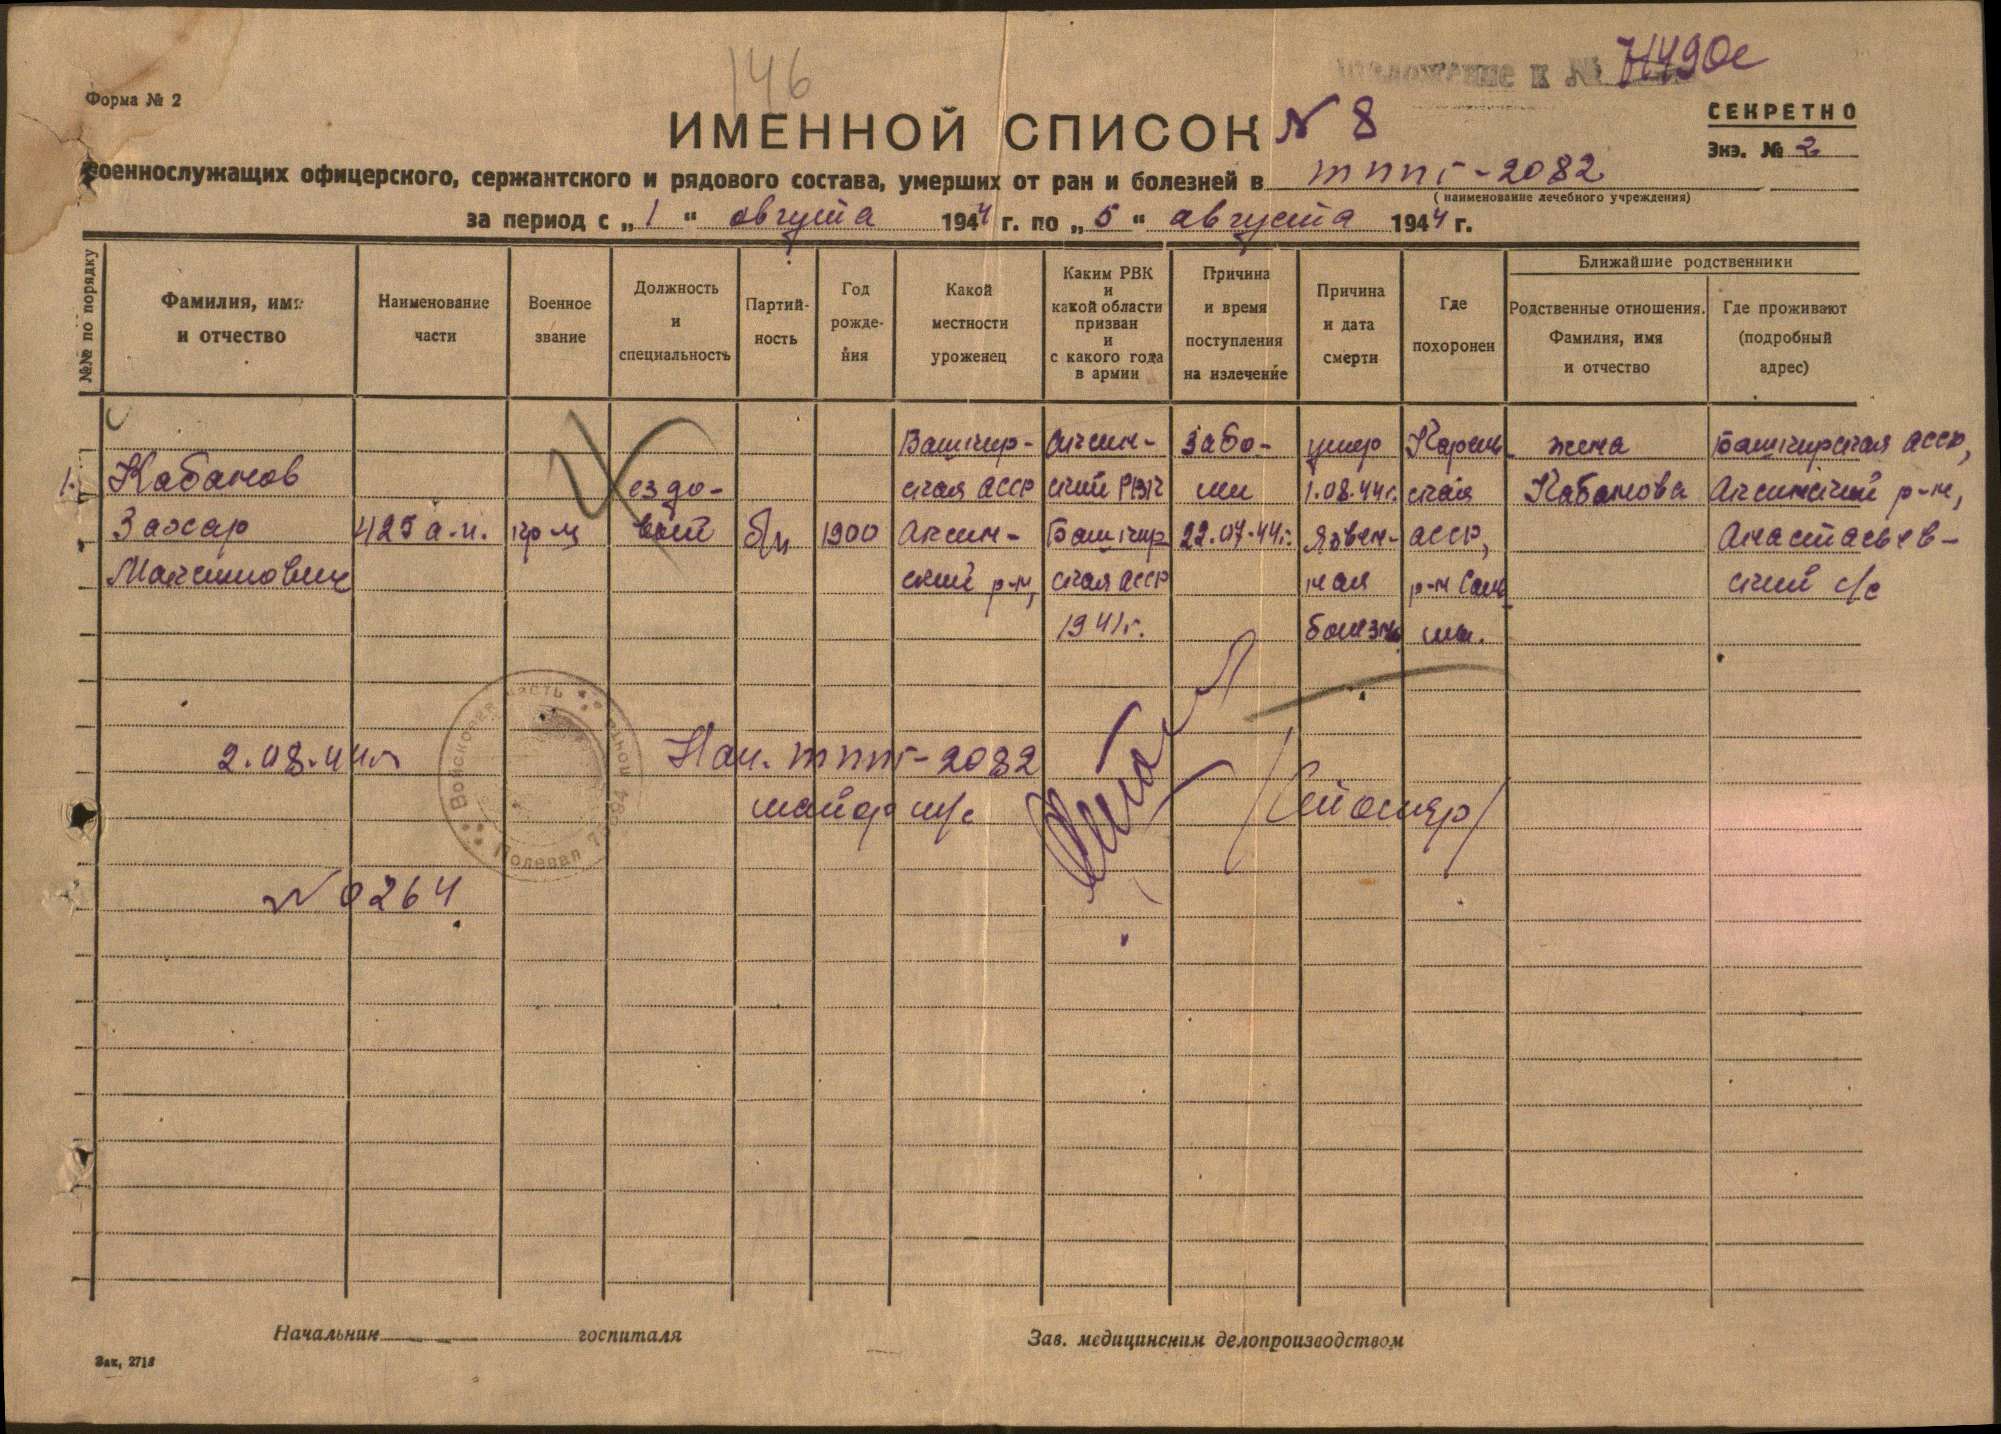 146
Приложение к № 71490с
Форма № 2
ИМЕННОЙ СПИСОК N 8
СЕКРЕТНО
Экз. № 2
военнослужащих офицерского, сержантского и рядового состава, умерших от ран и болезней в ТППГ-2082
(наименование лечебного учреждения)
за период с „1“ августа 1944 г. по „5“ августа 1944 г.
№№ по порядку
Фамилия, имя и отчество
Наименование части
Военное звание
Должность и специальность
Партий-ность
Год рожде-ния
Какой местности уроженец
Каким РВК и какой области призван и с какого года в армии
Причина и время поступления на излечение
Причина и дата смерти
Где похоронен
Ближайшие родственники
Родственные отношения. Фамилия, имя и отчество
Где проживают (подробный адрес)
1.
Кабанов
Захар
Максимович
425 а.п.
кр-ц
ездо-
вой
б/п
1900
Башкир-
ская АССР
Аскин-
ский р-н,
Аскин-
ский РВК
Башкир
ская АССР
1941г.
Забо-
лел
22.07.44г.
умер
1.08.44г.
Язвен-
ная
болезнь
Карель-
ская
АССР,
р-н Саль-
мы.
жена
Кабанова
Башкирская АССР,
Аскинский р-н,
Анастасьев-
ский с/с
2.08.44г
Войсковая часть
Полевая почта
Нач. ТППГ-2082
майор м/с
N 0264
Начальник госпиталя
Зав. медицинским делопроизводством
Зак, 2718